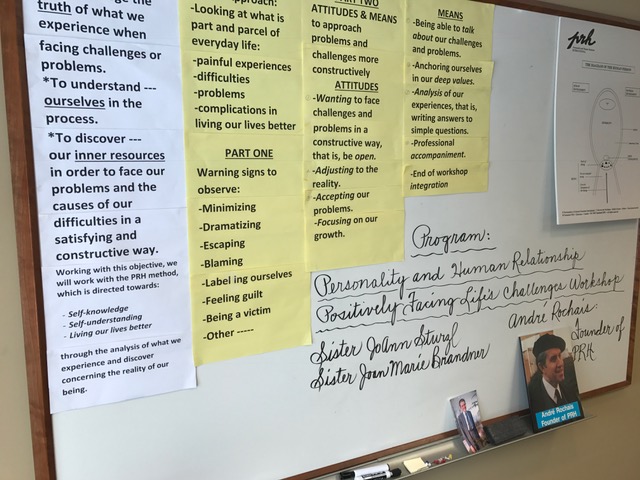 truth of what we
experience when
facing challenges or
problems.
*To understand ---
ourselves in the
process.
*To discover ---
our inner resources
in order to face our
problems and the
causes of our
difficulties in a
satisfying and
constructive way.
Working with this objective, we
will work with the PRH method,
which is directed towards:
- Self-knowledge
- Self-understanding
- Living our lives better
through the analysis of what we
experience and discover
concerning the reality of our
being.
-Looking at what is
part and parcel of
everyday life:
-painful experiences
-difficulties
-problems
-complications in
living our lives better
PART ONE
Warning signs to
observe:
-Minimizing
-Dramatizing
-Escaping
-Blaming
-Labeling ourselves
-Feeling guilt
-Being a victim
-Other -----
ATTITUDES & MEANS
to approach
problems and
challenges more
constructively
ATTITUDES
-Wanting to face
challenges and
problems in a
constructive way,
that is, be open.
-Adjusting to the
reality.
-Accepting our
problems.
-Focusing on our
growth.
MEANS
-Being able to talk
about our challenges
and problems.
-Anchoring ourselves
in our deep values.
-Analysis of our
experiences, that is,
writing answers to
simple questions.
-Professional
accompaniment.
-End of workshop
integration
prh
Program:
Personality and Human Relationship
Positively Facing Life's Challenges Workshop
Sister JoAnn Sturzl
Sister Joan Marie Brandner
André Rochais:
Founder of
PRH
André Rochais
Founder of PRH